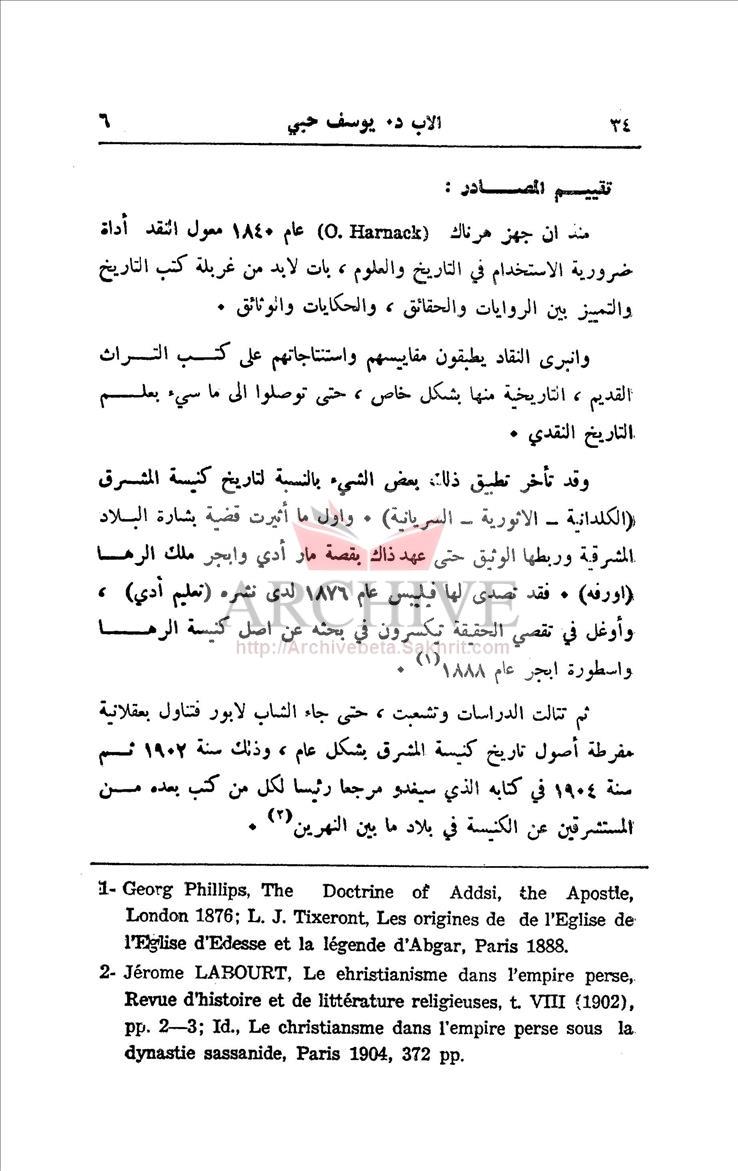 ٣٤ الاب د٠ يوسف حبي ٦
تقييم المصادر :
منذ ان جهز هرناك (O. Harnack) عام ١٨٤٠ معول النقد أداة
ضرورية الاستخدام في التاريخ والعلوم ، بات لابد من غربلة كتب التاريخ
والتمييز بين الروايات والحقائق ، والحكايات والوثائق ٠
وانبرى النقاد يطبقون مقاييسهم واستنتاجاتهم على كتب التراث
القديم ، التاريخية منها بشكل خاص ، حتى توصلوا الى ما سيء بعلم
التاريخ النقدي ٠
وقد تأخر تطبيق ذلك بعض الشيء بالنسبة لتاريخ كنيسة المشرق
(الكلدانية ــ الاثورية ــ السريانية) ٠ واول ما أثيرت قضية بشارة البلاد
المشرقية وربطها الوثيق حتى عهد ذاك بقصة مار أدي وابجر ملك الرها
(اورفه) ٠ فقد تصدى لها فيليبس عام ١٨٧٦ لدى نشره (تعليم أدي) ،
ARCHIVE
وأوغل في تقصي الحقيقة تيكسرون في بحثه عن اصل كنيسة الرها
http://Archivebeta.Sakhrit.com
واسطورة ابجر عام ١٨٨٨(١) ٠
ثم تتالت الدراسات وتشعبت ، حتى جاء الشاب لابور فتناول بعقلانية
مفرطة أصول تاريخ كنيسة المشرق بشكل عام ، وذلك سنة ١٩٠٢ ثم
سنة ١٩٠٤ في كتابه الذي سيغدو مرجعا رئيسا لكل من كتب بعده من
المستشرقين عن الكنيسة في بلاد ما بين النهرين(٢) ٠
1- Georg Phillips, The Doctrine of Addsi, the Apostle,
London 1876; L. J. Tixeront, Les origines de de l'Eglise de
l'Eglise d'Edesse et la légende d'Abgar, Paris 1888.
2- Jérome LABOURT, Le ehristianisme dans l'empire perse,
Revue d'histoire et de littérature religieuses, t. VIII (1902),
pp. 2—3; Id., Le christiansme dans l'empire perse sous la
dynastie sassanide, Paris 1904, 372 pp.